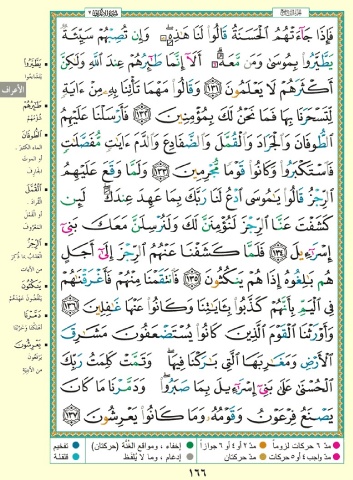 فَإِذَا جَآءَتْهُمُ ٱلْحَسَنَةُ قَالُوا۟ لَنَا هَٰذِهِۦ ۖ وَإِن تُصِبْهُمْ سَيِّئَةٌ
يَطَّيَّرُوا۟ بِمُوسَىٰ وَمَن مَّعَهُۥٓ ۗ أَلَآ إِنَّمَا طَٰٓئِرُهُمْ عِندَ ٱللَّهِ وَلَٰكِنَّ
أَكْثَرَهُمْ لَا يَعْلَمُونَ ١٣١ وَقَالُوا۟ مَهْمَا تَأْتِنَا بِهِۦ مِنْ ءَايَةٍ
لِّتَسْحَرَنَا بِهَا فَمَا نَحْنُ لَكَ بِمُؤْمِنِينَ ١٣٢ فَأَرْسَلْنَا عَلَيْهِمُ
ٱلطُّوفَانَ وَٱلْجَرَادَ وَٱلْقُمَّلَ وَٱلضَّفَادِعَ وَٱلدَّمَ ءَايَٰتٍ مُّفَصَّلَٰتٍ
فَٱسْتَكْبَرُوا۟ وَكَانُوا۟ قَوْمًا مُّجْرِمِينَ ١٣٣ وَلَمَّا وَقَعَ عَلَيْهِمُ
ٱلرِّجْزُ قَالُوا۟ يَٰمُوسَى ٱدْعُ لَنَا رَبَّكَ بِمَا عَهِدَ عِندَكَ ۖ لَئِن
كَشَفْتَ عَنَّا ٱلرِّجْزَ لَنُؤْمِنَنَّ لَكَ وَلَنُرْسِلَنَّ مَعَكَ بَنِىٓ
إِسْرَٰٓءِيلَ ١٣٤ فَلَمَّا كَشَفْنَا عَنْهُمُ ٱلرِّجْزَ إِلَىٰٓ أَجَلٍ
هُم بَٰلِغُوهُ إِذَا هُمْ يَنكُثُونَ ١٣٥ فَٱنتَقَمْنَا مِنْهُمْ فَأَغْرَقْنَٰهُمْ
فِى ٱلْيَمِّ بِأَنَّهُمْ كَذَّبُوا۟ بِـَٔايَٰتِنَا وَكَانُوا۟ عَنْهَا غَٰفِلِينَ ١٣٦
وَأَوْرَثْنَا ٱلْقَوْمَ ٱلَّذِينَ كَانُوا۟ يُسْتَضْعَفُونَ مَشَٰرِقَ
ٱلْأَرْضِ وَمَغَٰرِبَهَا ٱلَّتِى بَٰرَكْنَا فِيهَا ۖ وَتَمَّتْ كَلِمَتُ رَبِّكَ
ٱلْحُسْنَىٰ عَلَىٰ بَنِىٓ إِسْرَٰٓءِيلَ بِمَا صَبَرُوا۟ ۖ وَدَمَّرْنَا مَا كَانَ
يَصْنَعُ فِرْعَوْنُ وَقَوْمُهُۥ وَمَا كَانُوا۟ يَعْرِشُونَ ١٣٧
الأعراف
يَطَّيَّرُوا
طَائِرُهُمْ
الطُّوفَانَ
الماء الكثير
أو الموت
القُمَّلَ
الرِّجْزُ
يَنكُثُونَ
دَمَّرْنَا
يَعْرِشُونَ
مدّ ٦ حركات لزوماً
مدّ ٢ أو ٤ أو ٦ جوازاً
إخفاء، ومواقع الغُنَّة (حركتان)
تفخيم
مدّ واجب ٤ أو ٥ حركات
مدّ حركتان
إدغام، وما لا يُلفَظ
قلقلة
١٦٦